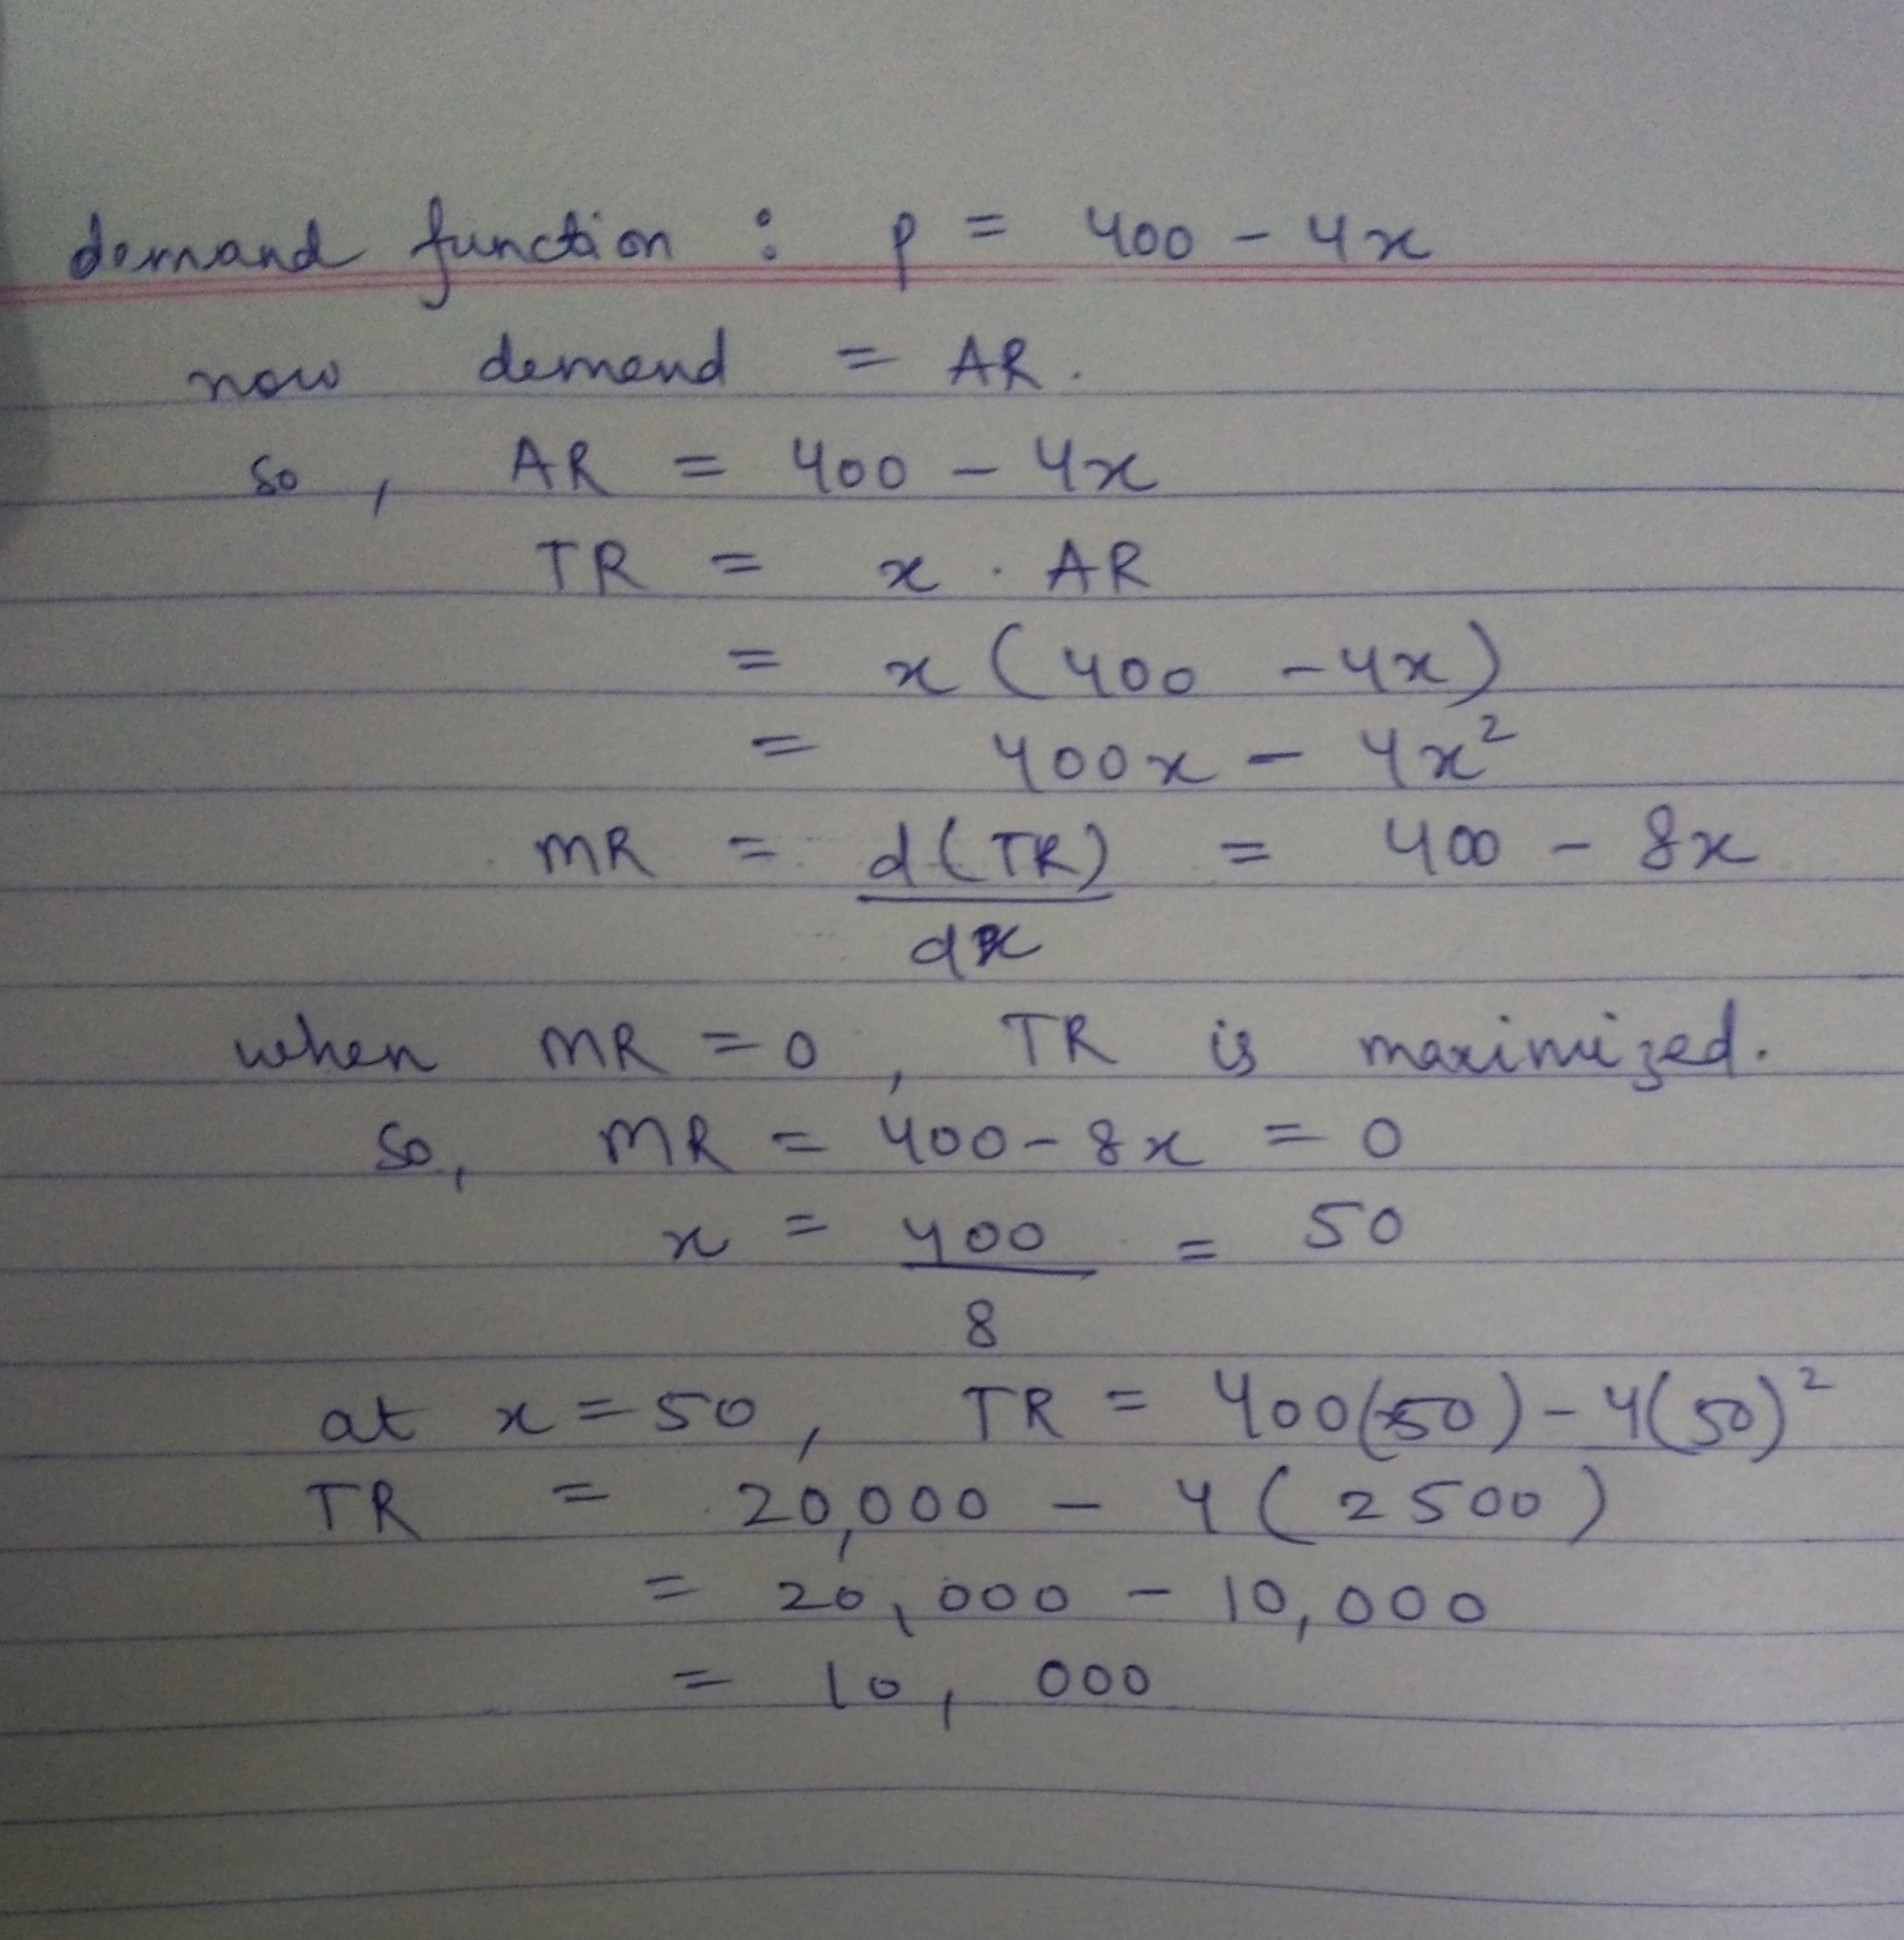 demand function : p = 400 - 4x
now demand = AR.
so, AR = 400 - 4x
TR = x . AR
= x (400 - 4x)
= 400x - 4x²
MR = d(TR) = 400 - 8x
dx
when MR = 0, TR is maximized.
So, MR = 400 - 8x = 0
x = 400 = 50
8
at x = 50, TR = 400(50) - 4(50)²
TR = 20,000 - 4 (2500)
= 20,000 - 10,000
= 10,000